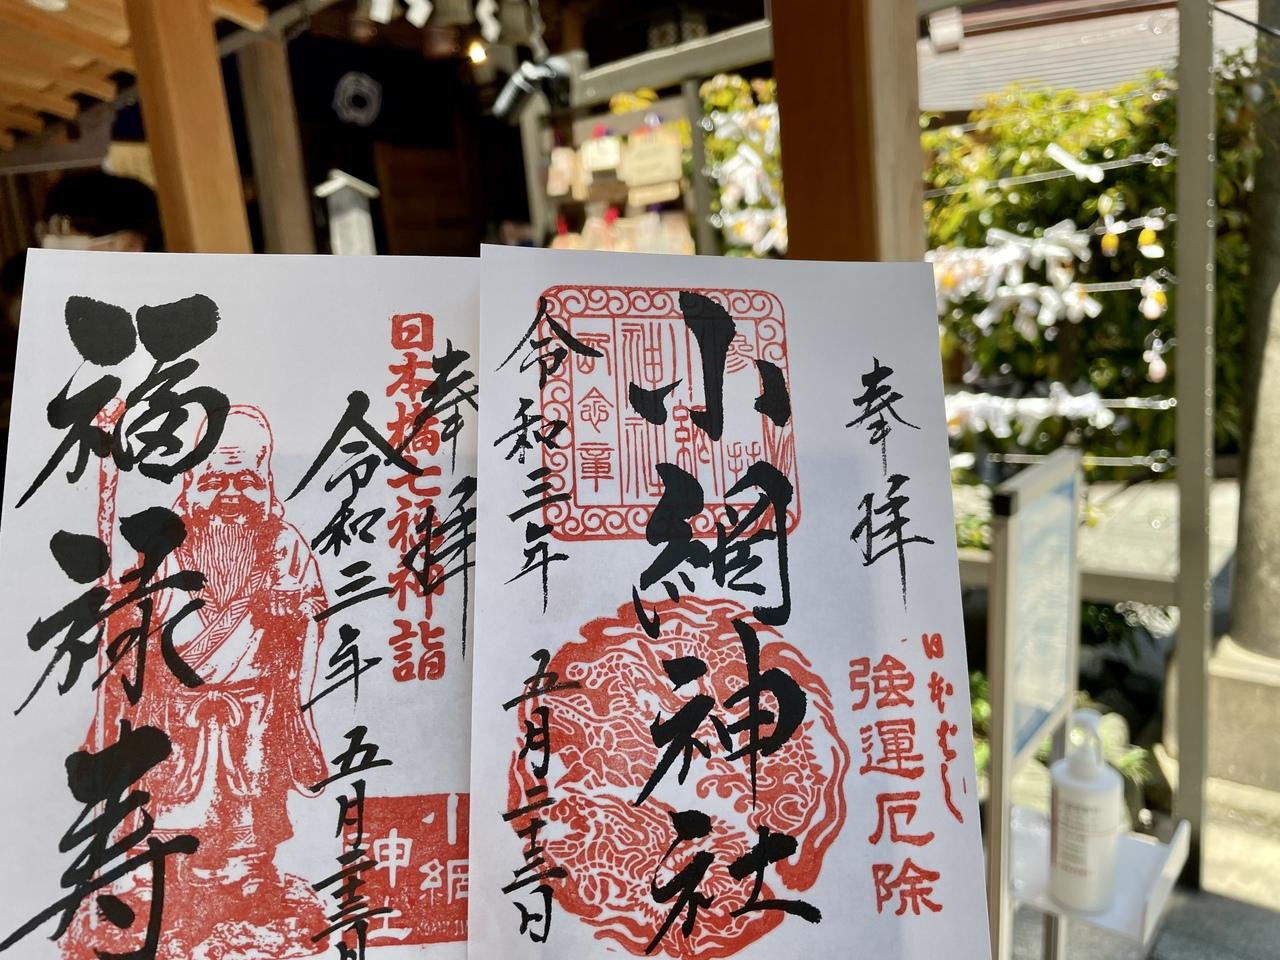 奉拝
日本橋七福神詣
令和三年
五月二十三日
福禄寿
小網
神社
奉拝
日本ばし
強運厄除
小網神社
参拝
小網神社
記念章
令和三年
五月二十三日